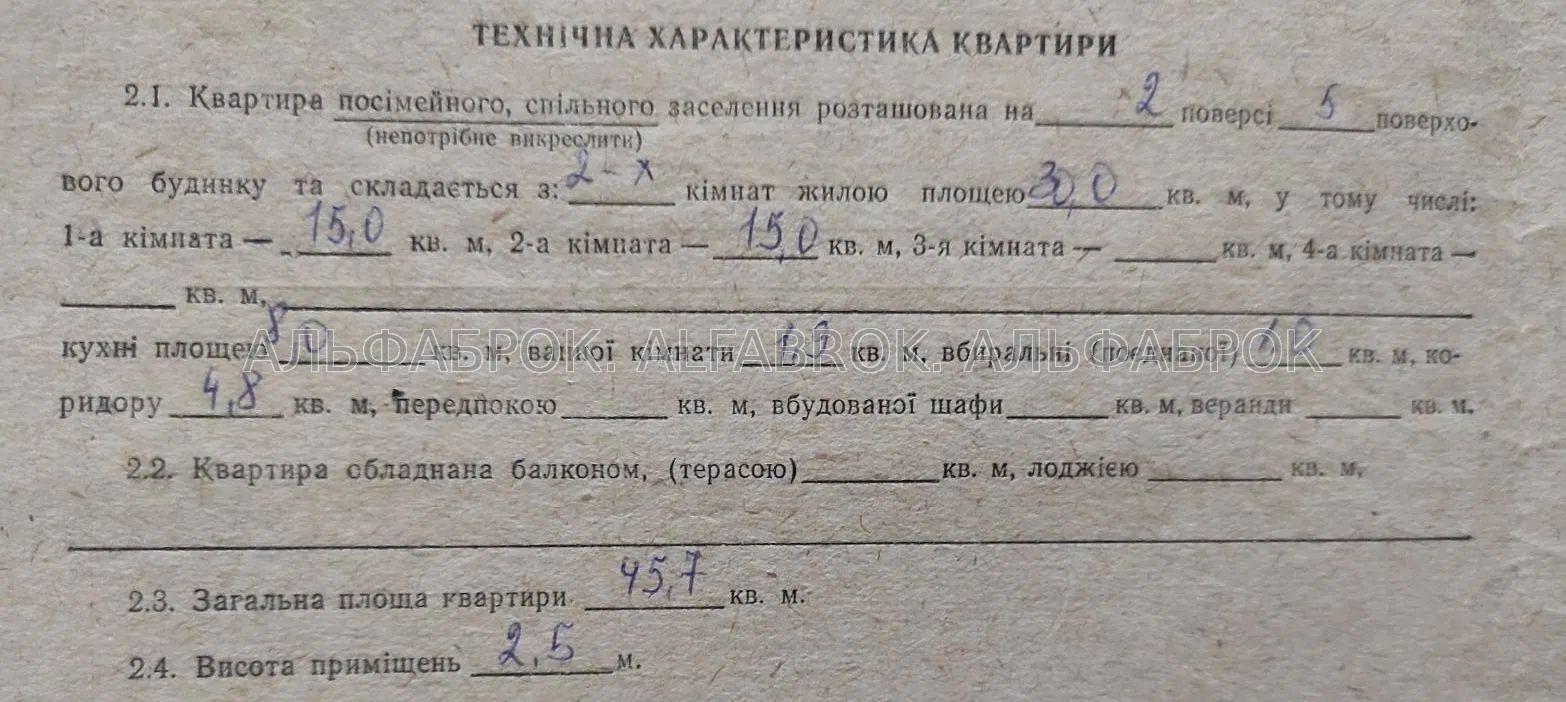 ТЕХНІЧНА ХАРАКТЕРИСТИКА КВАРТИРИ
2.1. Квартира посімейного, спільного заселення розташована на 2 поверсі 5 поверхо-
(непотрібне викреслити)
вого будинку та складається з: 2-х кімнат жилою площею 30,0 кв. м, у тому числі:
1-а кімната — 15,0 кв. м, 2-а кімната — 15,0 кв. м, 3-я кімната — кв. м, 4-а кімната —
кв. м,
кухні площею 8,0 кв. м, ванної кімнати кв. м, вбиральні (поєднаної) кв. м, ко-
АЛЬФАБРОК. ALFABROK. АЛЬФАБРОК
ридору 4,8 кв. м, передпокою кв. м, вбудованої шафи кв. м, веранди кв. м.
2.2. Квартира обладнана балконом, (терасою) кв. м, лоджією кв. м,
2.3. Загальна площа квартири 45,7 кв. м.
2.4. Висота приміщень 2,5 м.